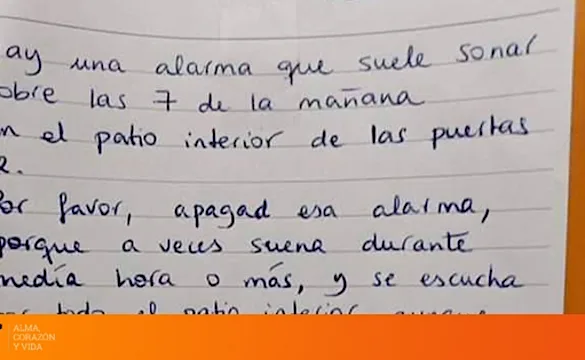 ay una alarma que suele sonar
obre las 7 de la mañana
n el patio interior de las puertas
2.
or favor, apagad esa alarma,
porque a veces suena durante
media hora o más, y se escucha
todo el patio interior
ALMA,
CORAZÓN
Y VIDA